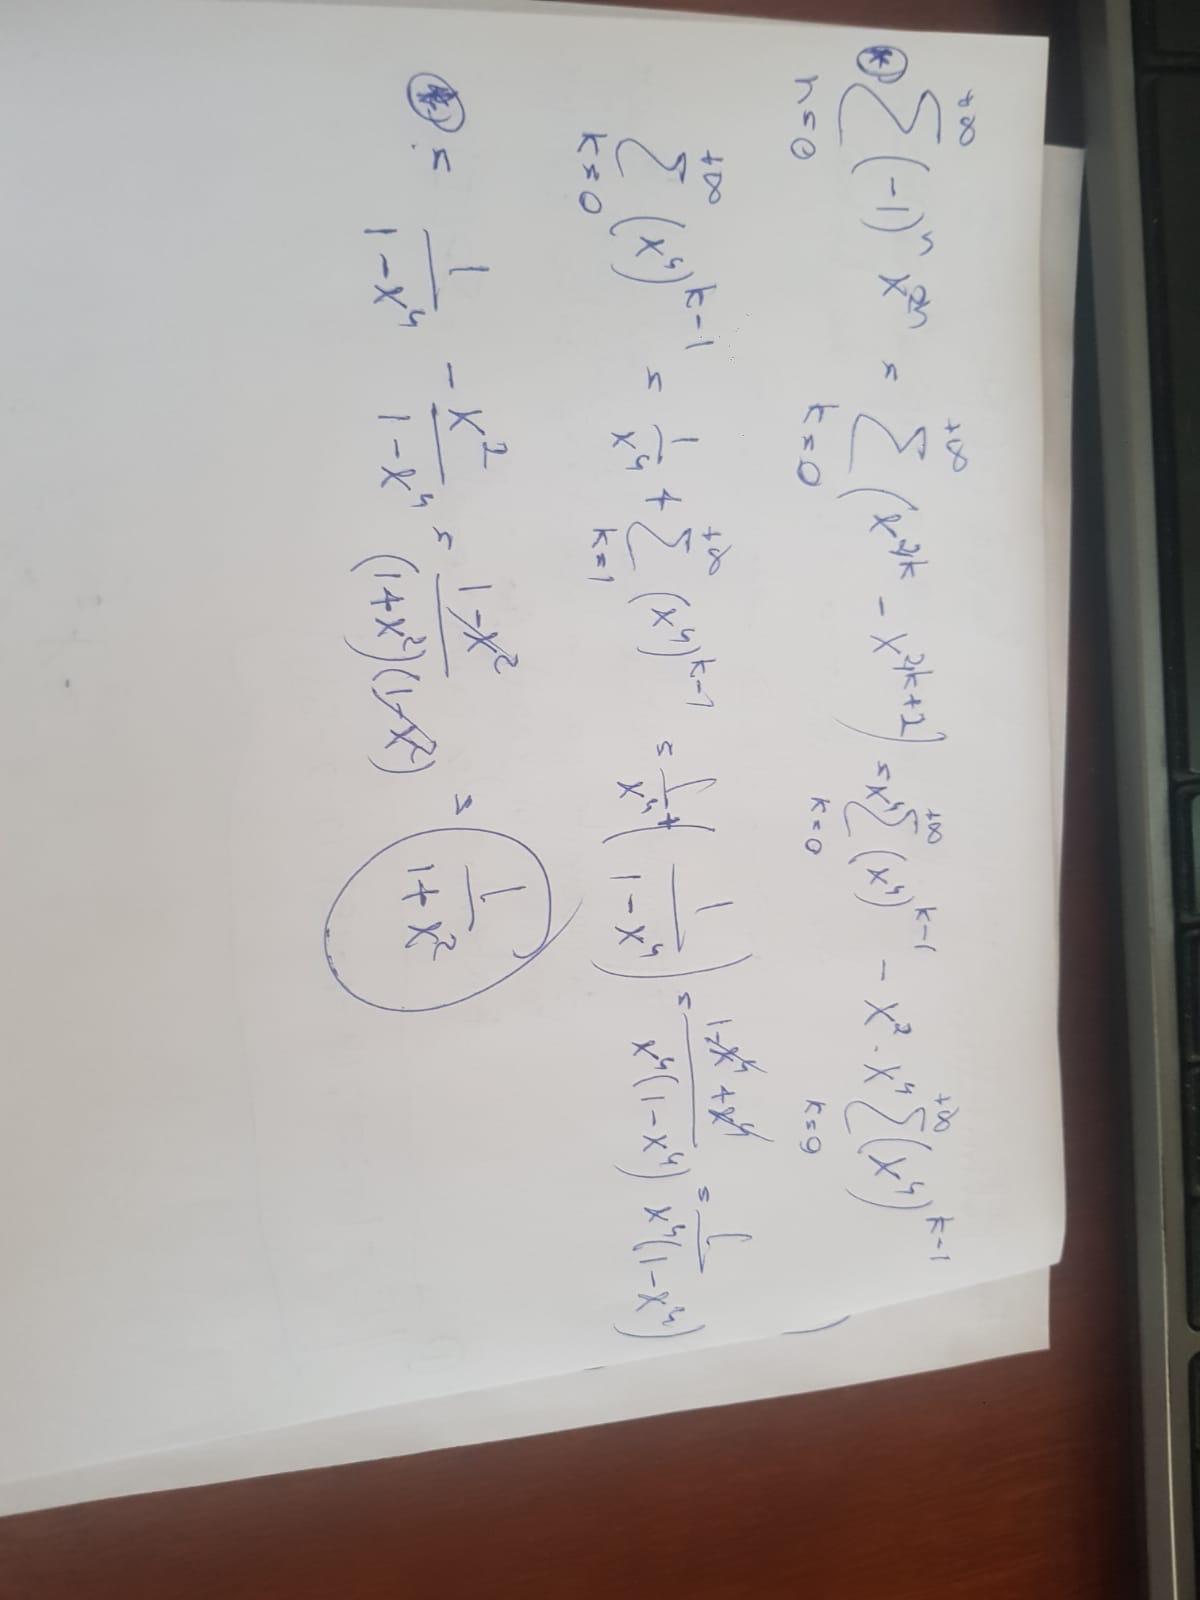 (*) \sum_{n=0}^{+\infty} (-1)^n x^{2n} = \sum_{k=0}^{+\infty} (x^{4k} - x^{4k+2}) = x^4 \sum_{k=0}^{+\infty} (x^4)^{k-1} - x^2 \cdot x^4 \sum_{k=0}^{+\infty} (x^4)^{k-1}
\sum_{k=0}^{+\infty} (x^4)^{k-1} = \frac{1}{x^4} + \sum_{k=1}^{+\infty} (x^4)^{k-1} = \frac{1}{x^4} + \left( \frac{1}{1-x^4} \right) = \frac{1-x^4+x^4}{x^4(1-x^4)} = \frac{1}{x^4(1-x^4)}
(*) = \frac{1}{1-x^4} - \frac{x^2}{1-x^4} = \frac{1-x^2}{(1+x^2)(1-x^2)} = \frac{1}{1+x^2}